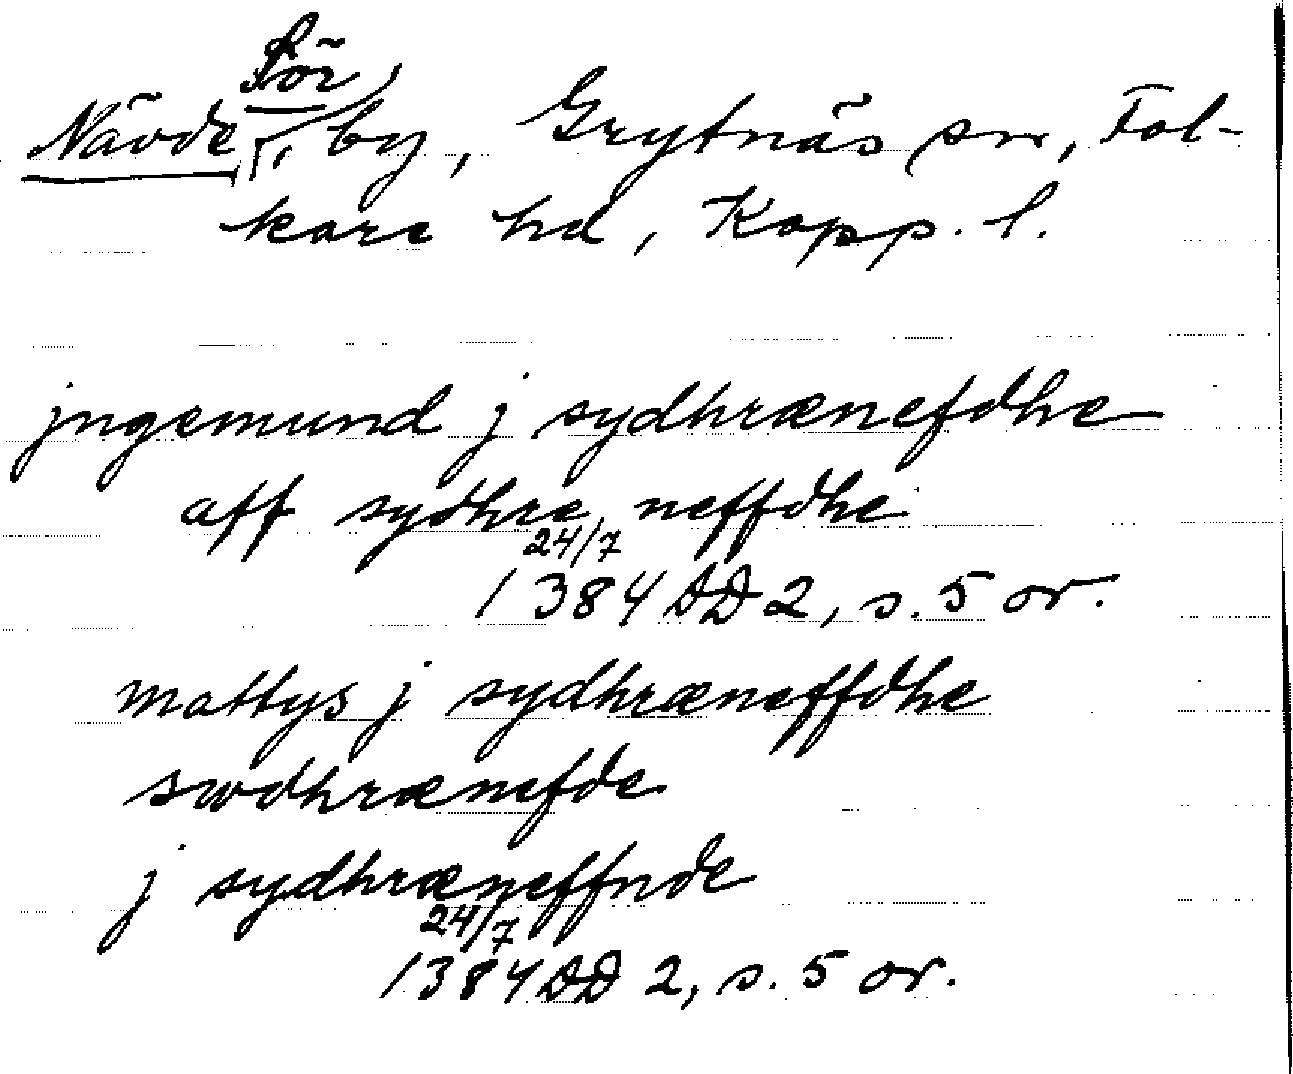 Nävde, Sör, by, Grytnäs sn, Fol-
kare hd, Kopp. l.
jngemund j sydhrænefdhe
aff sydhre neffdhe
24/7
1384 DD 2, s. 5 or.
mattys j sydhræneffdhe
swdhrænefde
j sydhræneffnde
24/7
1384 DD 2, s. 5 or.